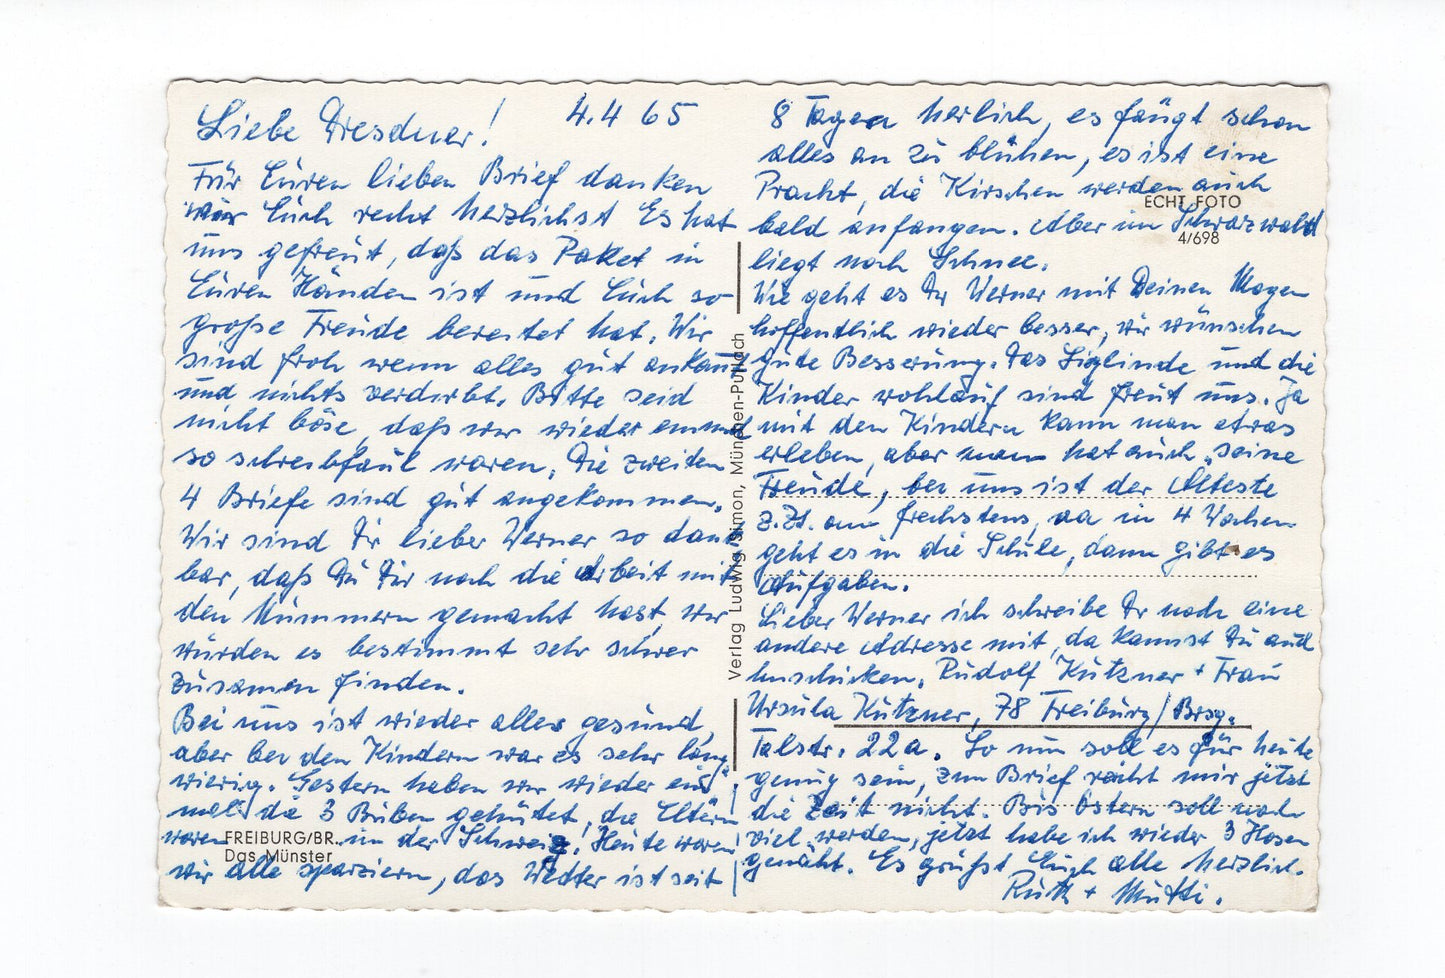 Liebe Dresdner! 4.4 65
Für Euren lieben Brief danken
wir Euch recht herzlichst Es hat
uns gefreut, daß das Paket in
Euren Händen ist und Euch so
große Freude bereitet hat. Wir
sind froh wenn alles gut ankomt
und nichts verdirbt. Bitte seid
nicht böse, daß wir wieder einmal
so schreibfaul waren, Die zweiten
4 Briefe sind gut angekommen.
Wir sind Dir lieber Werner so dank
bar, daß Du Dir noch die Arbeit mit
den Nummern gemacht hast, wir
würden es bestimmt sehr schwer
zusamen finden.
Bei uns ist wieder alles gesund,
aber bei den Kindern war es sehr lang
wierig. Gestern haben wir wieder ein
mal die 3 Buben gehütet, die Eltern
waren in der Schweiz. Heute waren
wir alle spaziern, das Wetter ist seit
FREIBURG/BR.
Das Münster
Verlag Ludwig Simon, München-Pullach
8 Tagen herlich, es fängt schon
alles an zu blühen, es ist eine
Pracht, die Kirschen werden auch
ECHT FOTO
bald anfangen. Aber im Schwarzwald
4/698
liegt noch Schnee.
Wie geht es Dir Werner mit Deinen Magen
hoffentlich wieder besser, wir wünschen
gute Besserung. Das Siglinde und die
Kinder wohlauf sind freut uns. Ja
mit den Kindern kann man etwas
erleben, aber man hat auch seine
Freude, bei uns ist der Älteste
z.Zt. am frechstens, na in 4 Wochen
geht es in die Schule, dann gibt es
Aufgaben.
Lieber Werner ich schreibe Dir noch eine
andere Adresse mit, da kannst Du auch
hinschicken. Rudolf Kützner + Frau
Ursula Kützner, 78 Freiburg/Brsg.
Talstr. 22a. So nun soll es für heute
genug sein, zum Brief reicht mir jetzt
die Zeit nicht. Bis Ostern soll noch
viel werden, jetzt habe ich wieder 3 Hosen
genäht. Es grüßt Euch alle herzlich.
Ruth + Mutti.